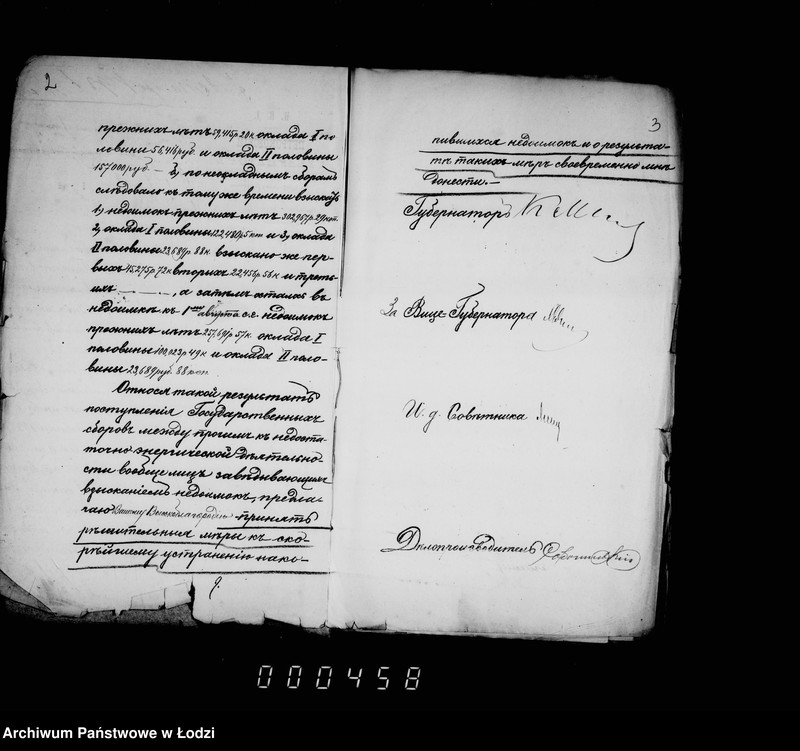 2
прежнихъ лѣтъ 59,415р 20к оклада I по
ловины 56,414 руб. и оклада II половины
157000 руб. — 2) по неокладнымъ сборамъ
слѣдовало къ тому же времени взыскать
1) недоимокъ прежнихъ лѣтъ 302,967р 29коп
2, оклада I половины 122,480р 5коп и 3, оклада
II половины 23,689р 88к. взыскано же пер-
выхъ 45275р 72к вторыхъ 22456р 56к и треть-
ихъ —, а затѣмъ осталось въ
недоимкѣ къ 1му августа с.г. недоимокъ
прежнихъ лѣтъ 257,691р 57к. оклада I
половины 100023р 49к и оклада II поло-
вины 23,689 руб. 88 коп.
Относя такой результатъ
поступленія Государственныхъ
сборовъ между прочимъ къ недоста-
точно энергической дѣятельно-
сти вообще лицъ завѣдывающихъ
взысканіемъ недоимокъ, предла-
гаю Вашему Высокоблагородію принять
рѣшительныя мѣры къ ско-
рѣйшему устраненію нако-
3
пившихся недоимокъ и о результа-
тѣ такихъ мѣръ своевременно мнѣ
донести. —
Губернаторъ
За Вице-Губернатора
И. д. Совѣтника
Дѣлопроизводитель
000458
Archiwum Państwowe w Łodzi